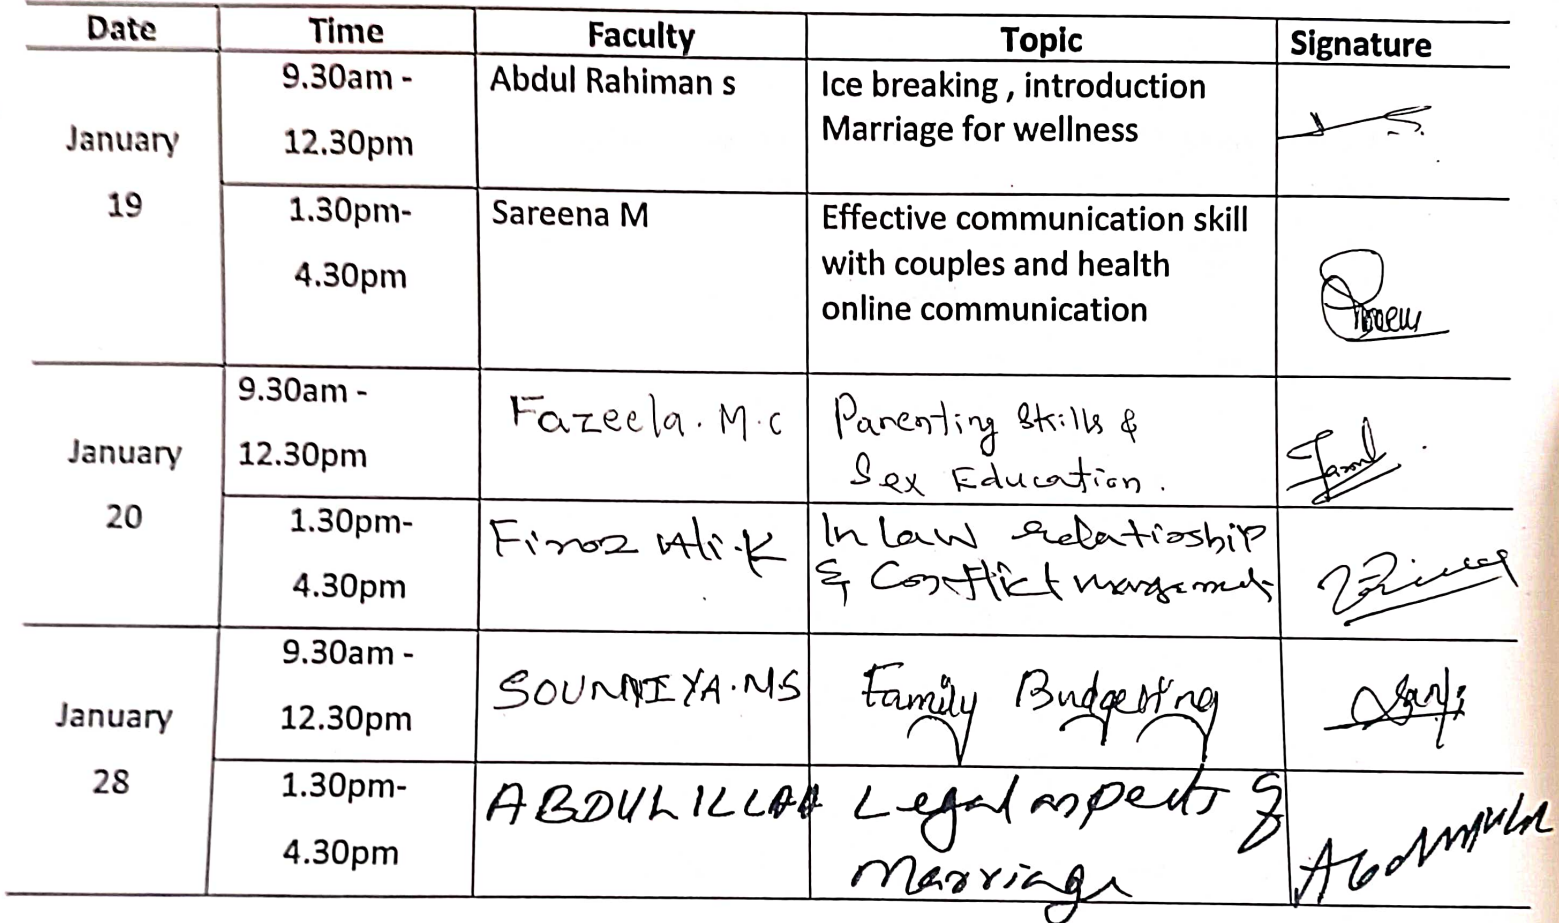 Date Time Faculty Topic Signature
January 19
9.30am - 12.30pm
Abdul Rahiman s
Ice breaking , introduction
Marriage for wellness
1.30pm- 4.30pm
Sareena M
Effective communication skill
with couples and health
online communication
January 20
9.30am - 12.30pm
Fazeela. M.C
Parenting skills &
Sex Education.
1.30pm- 4.30pm
Firoz Ali.K
In law relatioship
& Conflict management
January 28
9.30am - 12.30pm
SOUMNIYA.MS
Family Budgeting
1.30pm- 4.30pm
ABDULILLAH
Legal aspects &
Marriage